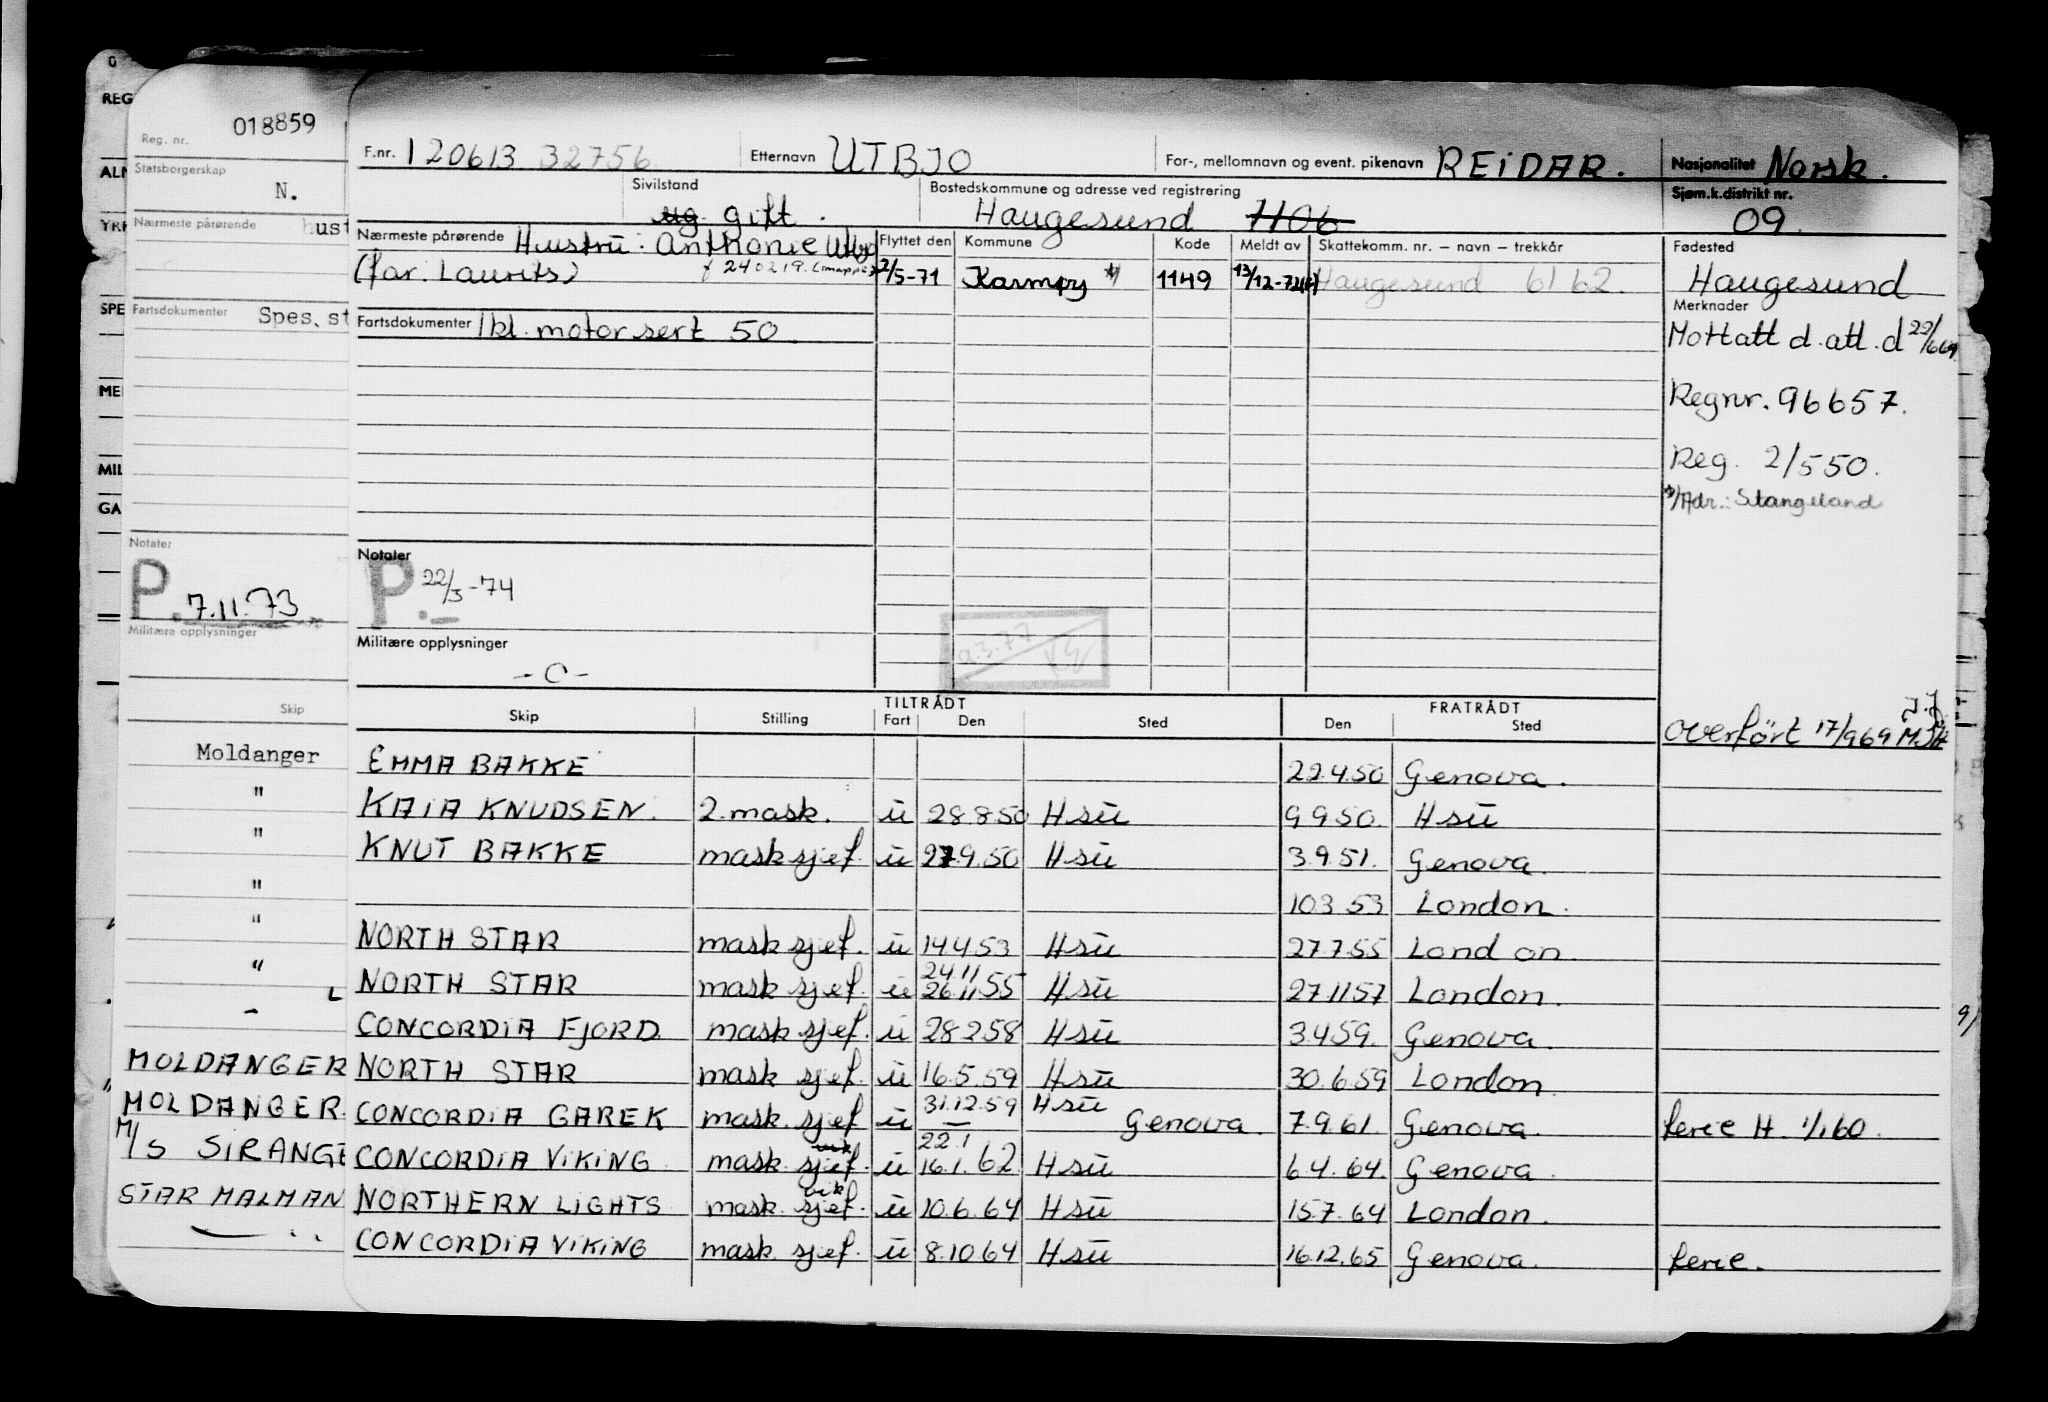 O
REG
ALM
YRK
SPE
MEI
MIL
GA
Reg. nr. 018859
Statsborgerskap
N.
Nærmeste pårørende hust
Fartsdokumenter Spes. st
Notater
P. 7.11.73
Militære opplysninger
Skip
Moldanger
"
"
"
"
"
MOLDANGER
MOLDANGER
M/S SIRANGE
STAR MALMAN
F.nr. 120613 32756 Etternavn UTBJO For-, mellomnavn og event. pikenavn REIDAR. Nasjonalitet Norsk.
Sivilstand ug gift. Bostedskommune og adresse ved registrering Haugesund 1106 Sjøm.k.distrikt nr. 09.
Nærmeste pårørende Hustru: Anthonie Utbjo
(far. Laurits) f 240219.
Flyttet den Kommune Kode Meldt av Skattekomm. nr. – navn – trekkår
2/5-71 Karmøy *) 1149 13/12-72 Haugesund 6162.
Fødested
Haugesund
Merknader
Mottatt d. att. d 22/669
Regnr. 96657.
Reg. 2/550.
*)/Adr.: Stangeland
Fartsdokumenter 1 kl. motor sert 50.
Notater
P. 22/3-74
Militære opplysninger
-0-
9.3.77
TILTRÅDT FRATRÅDT
Skip Stilling Fart Den Sted Den Sted
Overført 17/969 M.JH
EMMA BAKKE 22.4.50 Genova.
KAIA KNUDSEN. 2. mask. u 28.8.50 Hsu 9 9 50. Hsu
KNUT BAKKE mask sjef. u 279.50 Hsu 3.9.51. Genova.
103 53 London.
NORTH STAR mask sjef. u 14453 Hsu 27.7.55 London
NORTH STAR mask sjef. u 24.11 26.11 55 Hsu 271157 London.
CONCORDIA FJORD. mask. sjef. u 28258 Hsu 3459. Genova.
NORTH STAR mask sjef. u 16.5.59 Hsu 30.6.59 London.
CONCORDIA GAREK mask. sjef u 31.12.59 Hsu Genova. 7.9.61. Genova. ferie H. 1/1 60.
CONCORDIA VIKING mask. sjef. vik u 22.1 16.1.62 Hsu 6 4. 64. Genova.
NORTHERN LIGHTS mask. sjef. vik u 10.6.64 Hsu 157.64 London.
CONCORDIA VIKING mask. sjef. u 8.10.64 Hsu 16.12.65 Genova. ferie.